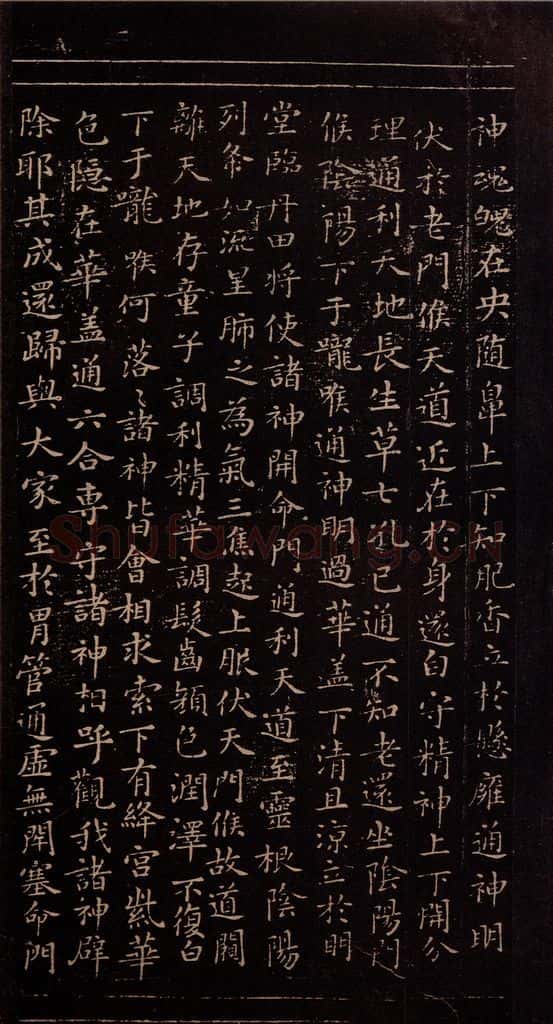 神魂魄在央随鼻上下知肥香立於懸膺通神明
伏於老門候天道近在於身還自守精神上下開分
理通利天地長生草七孔已通不知老還坐陰陽門
候陰陽下于嚨喉通神明過華盖下清且涼立於明
堂臨丹田将使諸神開命門通利天道至靈根陰陽
列布如流星肺之為氣三焦起上服伏天門候故道闚
離天地存童子調利精華調髮齒顔色潤澤不復白
下于嚨喉何落〻諸神皆會相求索下有絳宫紫華
色隱在華盖通六合専守諸神相呼觀我諸神辟
除耶其成還歸與大家至於胃管通虛無閉塞命門
Shufawang.CN